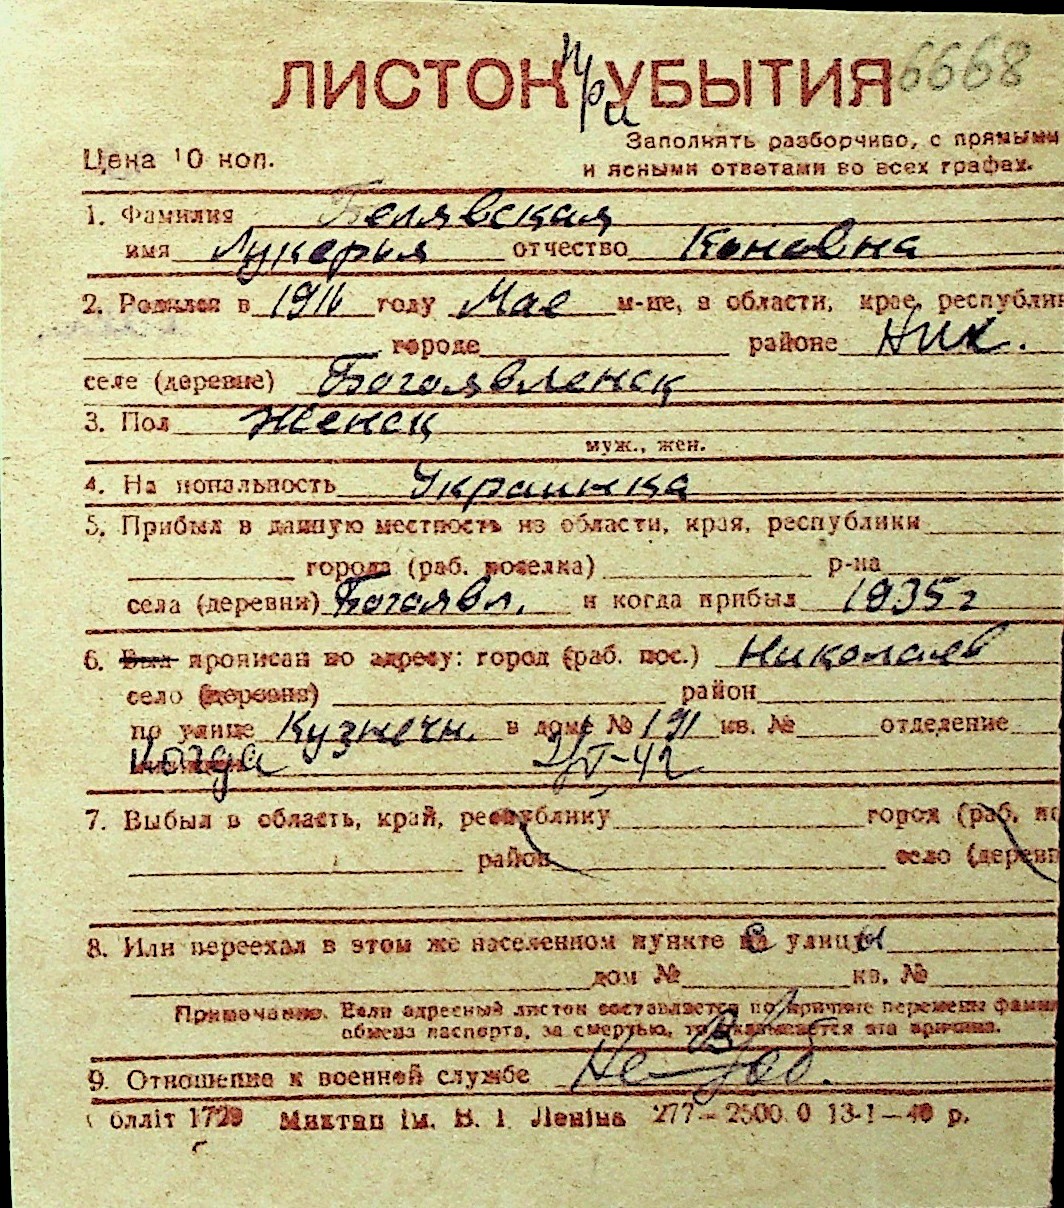 ЛИСТОК при УБЫТИЯ 6668
Заполнять разборчиво, с прямыми
Цена 10 коп.
и ясными ответами во всех графах.
1. Фамилия Белявская
имя Лукерья отчество Коновна
2. Родился в 1916 году Мае м-це, в области, крае, республик
городе районе Ник.
селе (деревне) Богоявленск
3. Пол Женск
муж., жен.
4. Национальность Украинка
5. Прибыл в данную местность из области, края, республики
города (раб. поселка) р-на
села (деревни) Богоявл. и когда прибыл 1935 г
6. Был прописан по адресу: город (раб. пос.) Николаев
село (деревня) район
по улице Кузнечн. в доме № 191 кв. № отделение
когда
7. Выбыл в область, край, республику город (раб. по
район село (деревн
8. Или переехал в этом же населенном пункте с улицы
дом № кв. №
Примечание. Если адресный листок составляется по причине перемены фами
обмена паспорта, за смертью, то указывается эта причина.
9. Отношение к военной службе Не
блліт 1729 ім. В. І. Леніна 277—2500.0 13-1—40 р.